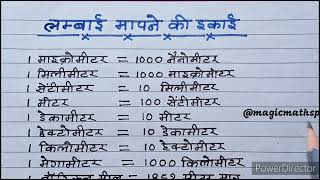 लम्बाई मापने की इकाई
1 माइक्रोमीटर = 1000 नैनोमीटर
1 मिलीमीटर = 1000 माइक्रोमीटर
1 सेंटीमीटर = 10 मिलीमीटर
1 मीटर = 100 सेंटीमीटर
1 डेकामीटर = 10 मीटर
@magicmathsp
1 हेक्टोमीटर = 10 डेकामीटर
1 किलोमीटर = 10 हेक्टोमीटर
1 मेगामीटर = 1000 किलोमीटर
PowerDirector